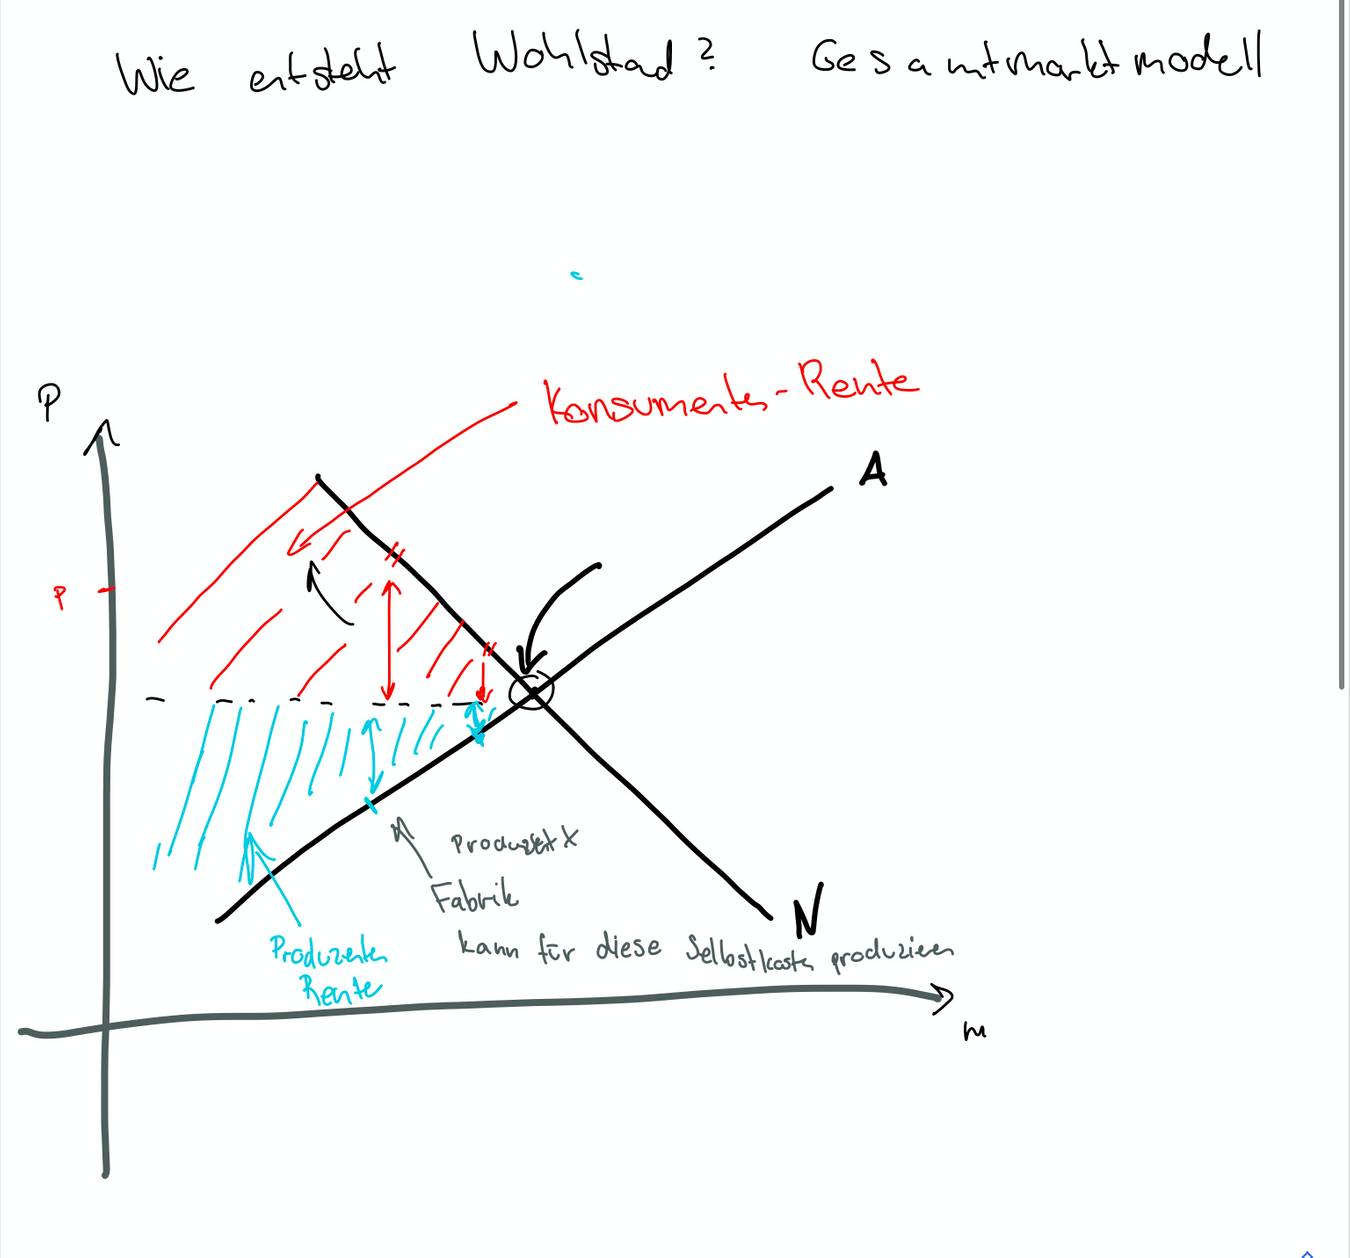 Wie entsteht Wohlstad? Gesamtmarktmodell
P
Konsumenten-Rente
A
P
Produzent X
Fabrik
N
kann für diese Selbstkosten produzieren
Produzenten
Rente
m